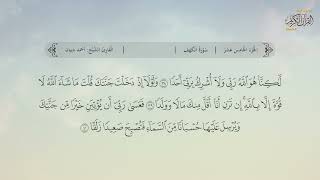 القرآن الكريم
الجزء الخامس عشر | سورة الكهف | القارئ الشيخ: أحمد ديبان
لَّٰكِنَّا۠ هُوَ ٱللَّهُ رَبِّي وَلَآ أُشْرِكُ بِرَبِّيٓ أَحَدًا ٣٨ وَلَوْلَآ إِذْ دَخَلْتَ جَنَّتَكَ قُلْتَ مَا شَآءَ ٱللَّهُ لَا
قُوَّةَ إِلَّا بِٱللَّهِۚ إِن تَرَنِ أَنَا۠ أَقَلَّ مِنكَ مَالًا وَوَلَدًا ٣٩ فَعَسَىٰ رَبِّيٓ أَن يُؤْتِيَنِ خَيْرًا مِّن جَنَّتِكَ
وَيُرْسِلَ عَلَيْهَا حُسْبَانًا مِّنَ ٱلسَّمَآءِ فَتُصْبِحَ صَعِيدًا زَلَقًا ٤٠